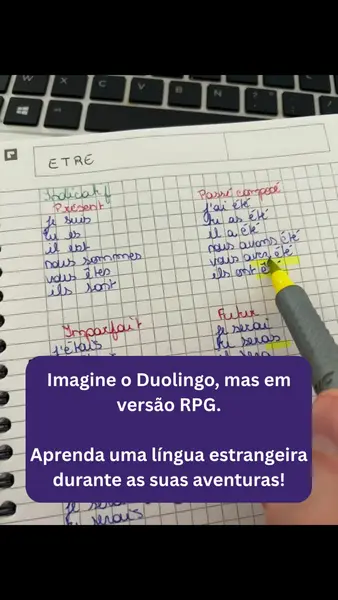 ETRE
Indicatif
Présent
je suis
tu es
il est
nous sommes
vous êtes
ils sont
Passé composé
j'ai été
tu as été
il a été
nous avons été
vous avez été
ils ont été
Imparfait
j'étais
Futur
je serai
tu seras
il sera
Imagine o Duolingo, mas em
versão RPG.
Aprenda uma língua estrangeira
durante as suas aventuras!
je serais
tu serais